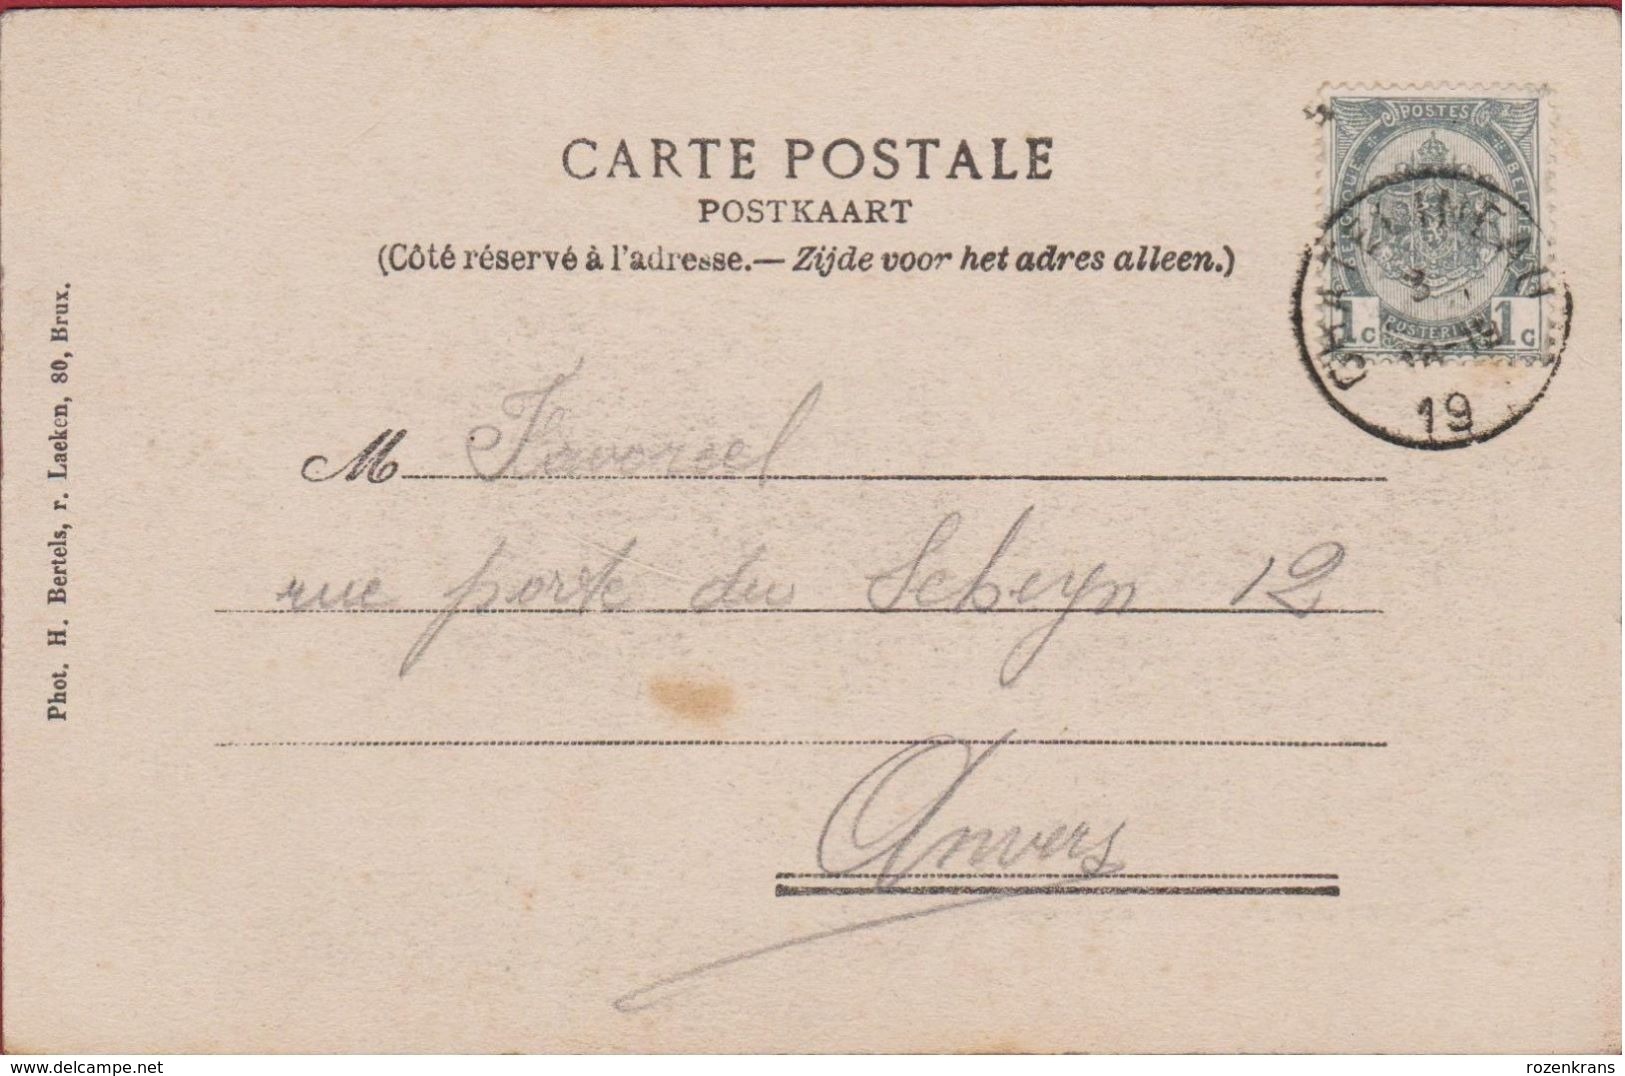 CARTE POSTALE
POSTKAART
(Côté réservé à l'adresse.— Zijde voor het adres alleen.)
POSTES
1c 1c
19
M Favoreel
rue porte du Scheyn 12
Anvers
Phot. H. Bertels, r. Laeken, 80, Brux.
www.delcampe.net
rozenkrans